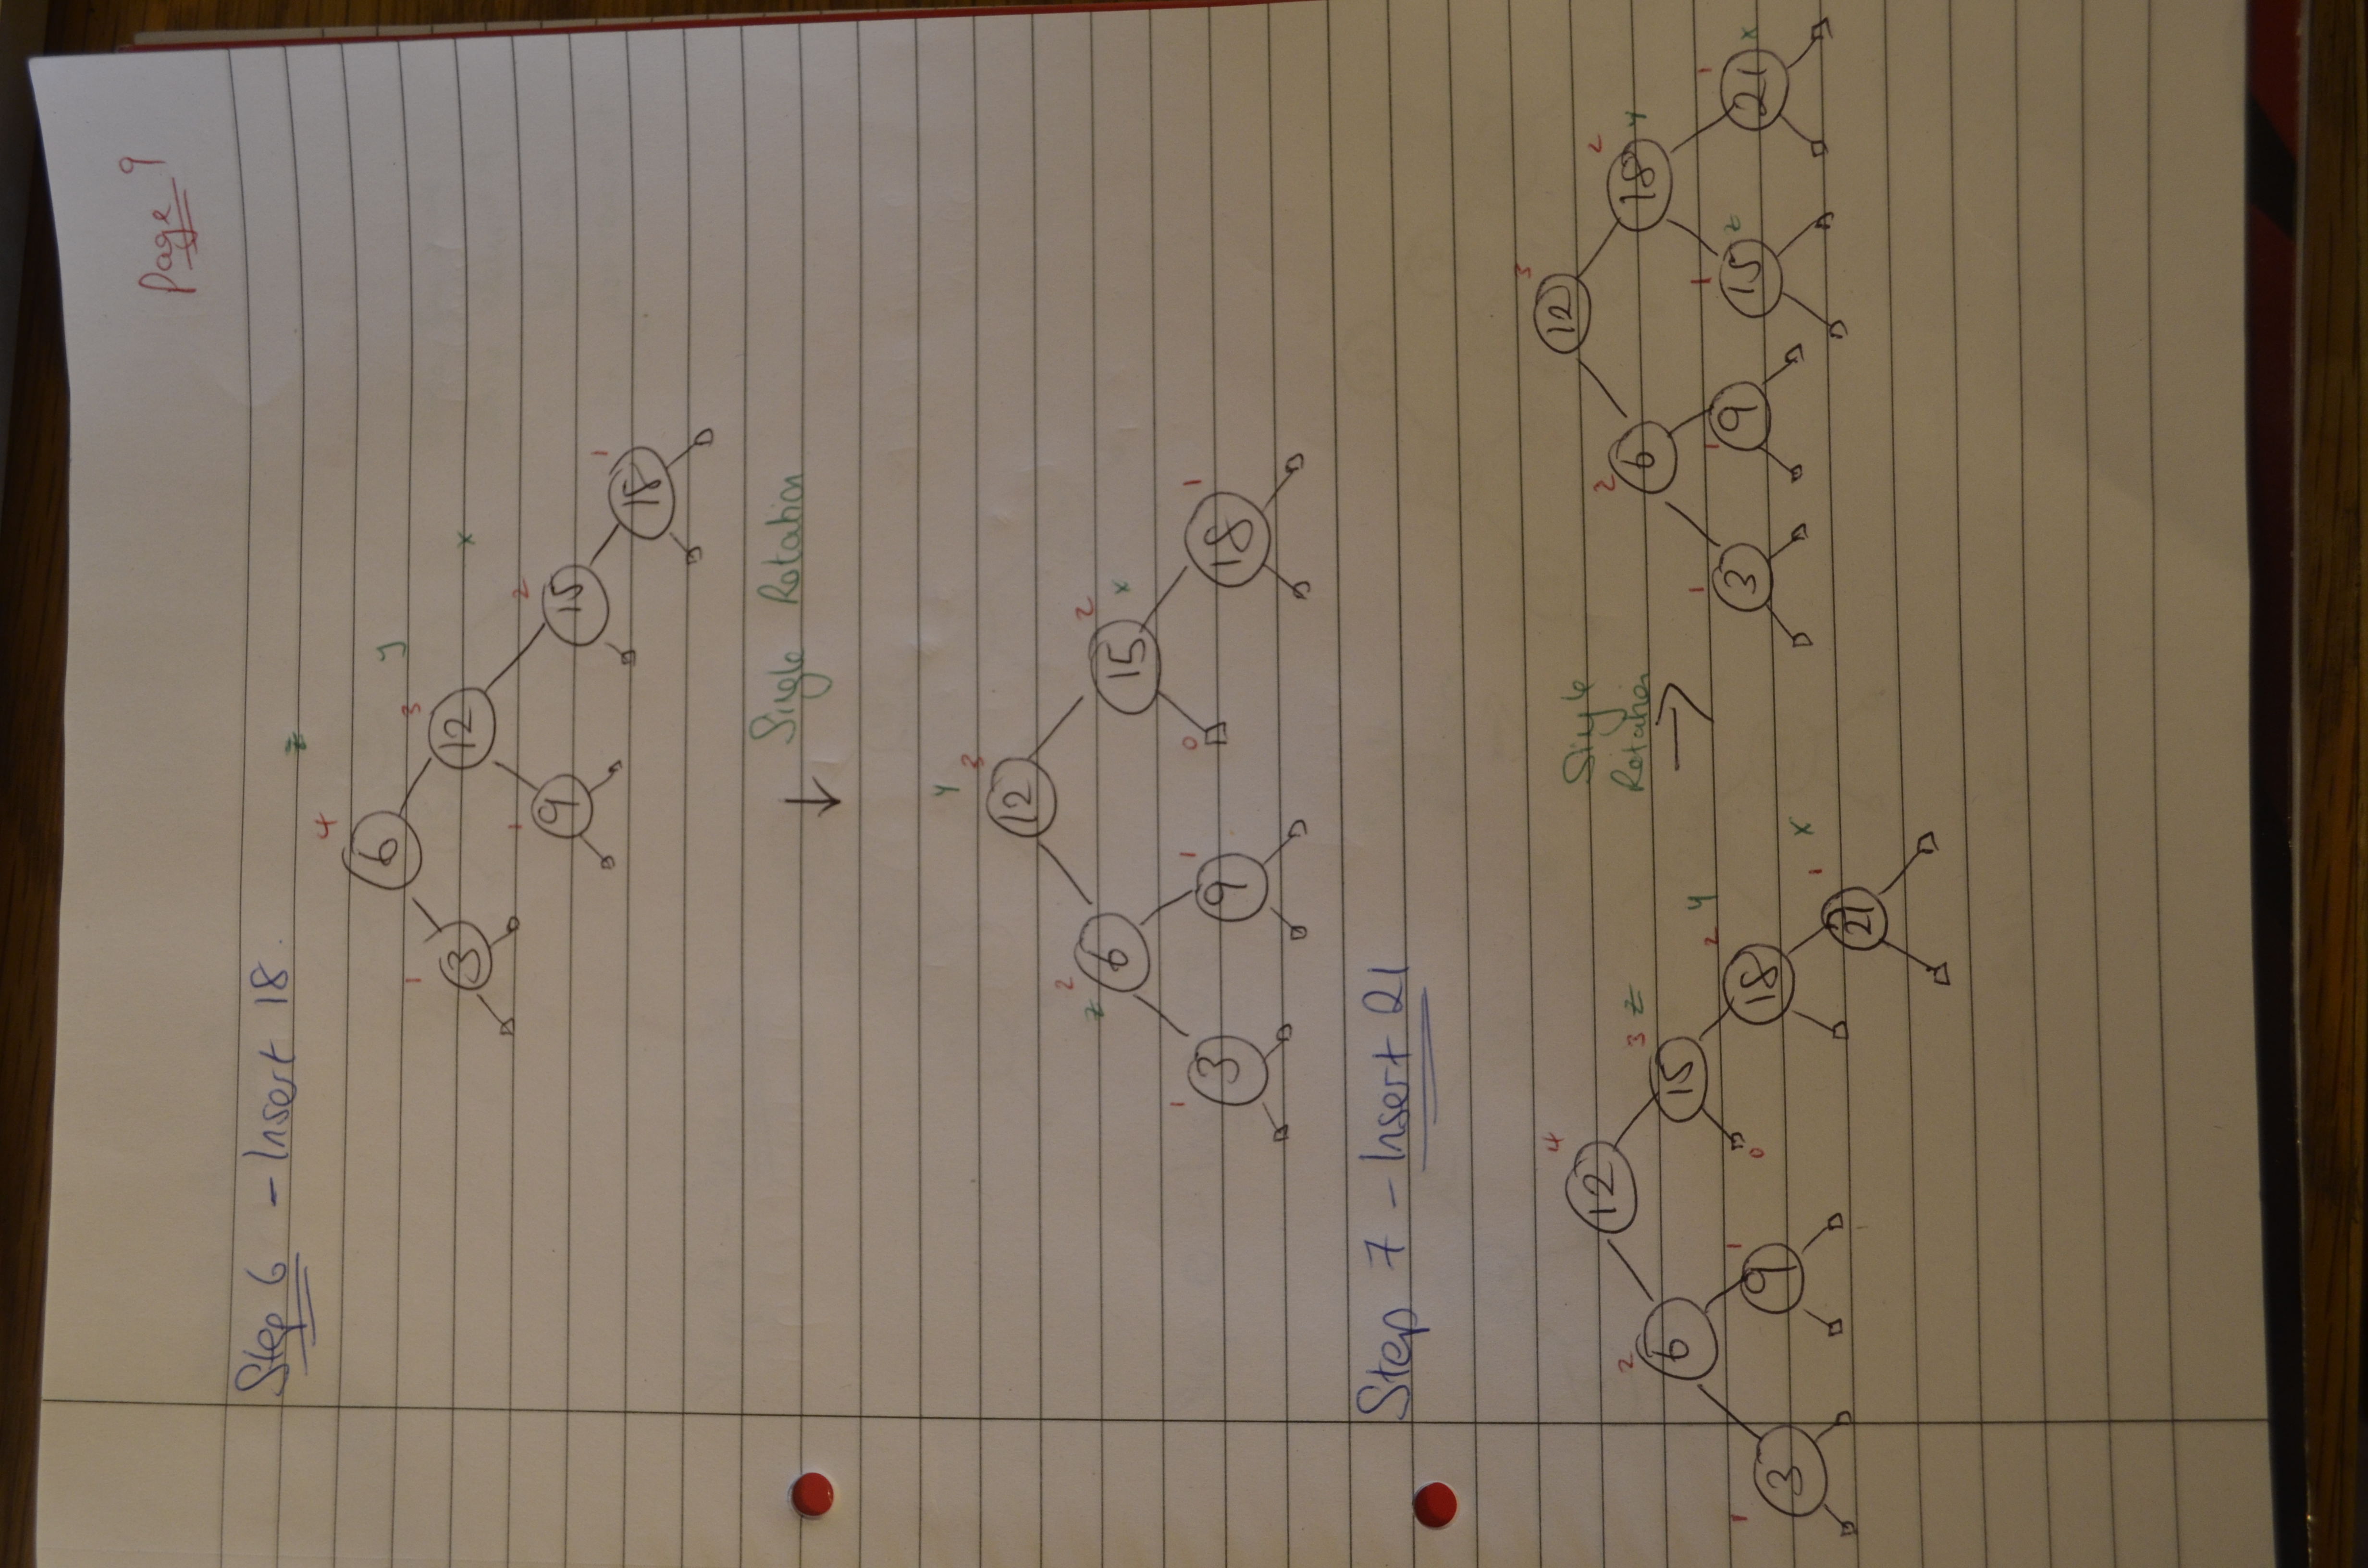 Page 9
Step 6 - Insert 18.
z
4
6
y
1
3
3
12
x
1
2
9
15
1
18
Single Rotation
y
3
12
2
2
z
6
15
x
1
1
0
1
3
9
18
Step 7 - Insert 21
4
12
2
6
3 z
15
2 y
1
1
0
3
9
18
1
x
21
Single
Rotation
3
12
2
2
6
18
y
1
1
1
1
3
9
15
z
21
x